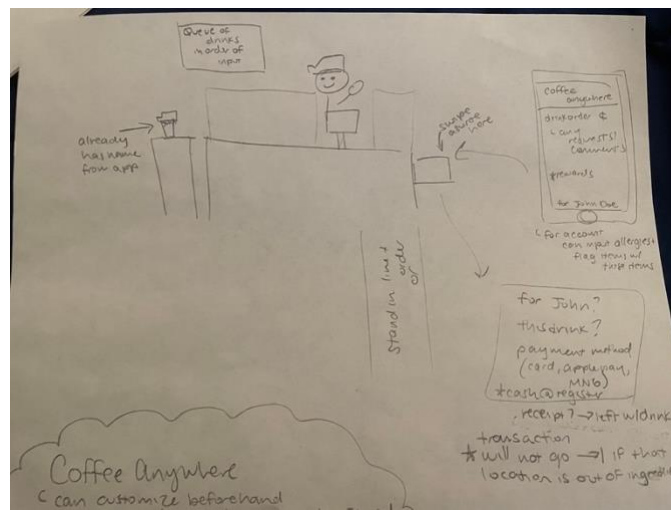 Queue of
drinks
in order of
input
already
has name
from app
swipe
here
coffee
anywhere
drink order &
any
requests/
comments
*rewards
for John Doe
for account
can input allergies +
flag items w/
those items
stand in line +
order
or
for John?
this drink?
payment method
(card, apple pay,
*cash @ register
receipt? → left w/ drink
transaction
* will not go → if that
location is out of
Coffee Anywhere
can customize beforehand